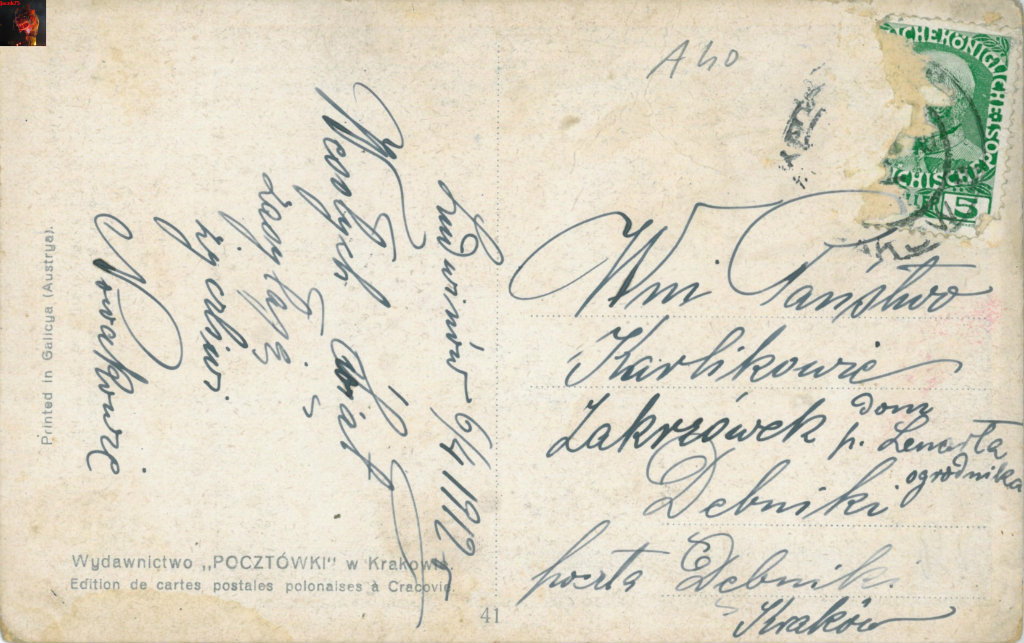 A 40
CHEKÖNIGLICHE
CHISCHE
5
Ludwinów 6/4 1912
Wesołych Świąt
zasyłają
życzliwi
Nowakowie
Wni Państwo
Karlikowie
Zakrzówek
dom
p. Lenarta
ogrodnika
Dębniki
poczta Dębniki
Kraków
Printed in Galicya (Austrya).
Wydawnictwo „POCZTÓWKI" w Krakowie.
Edition de cartes postales polonaises à Cracovie.
41